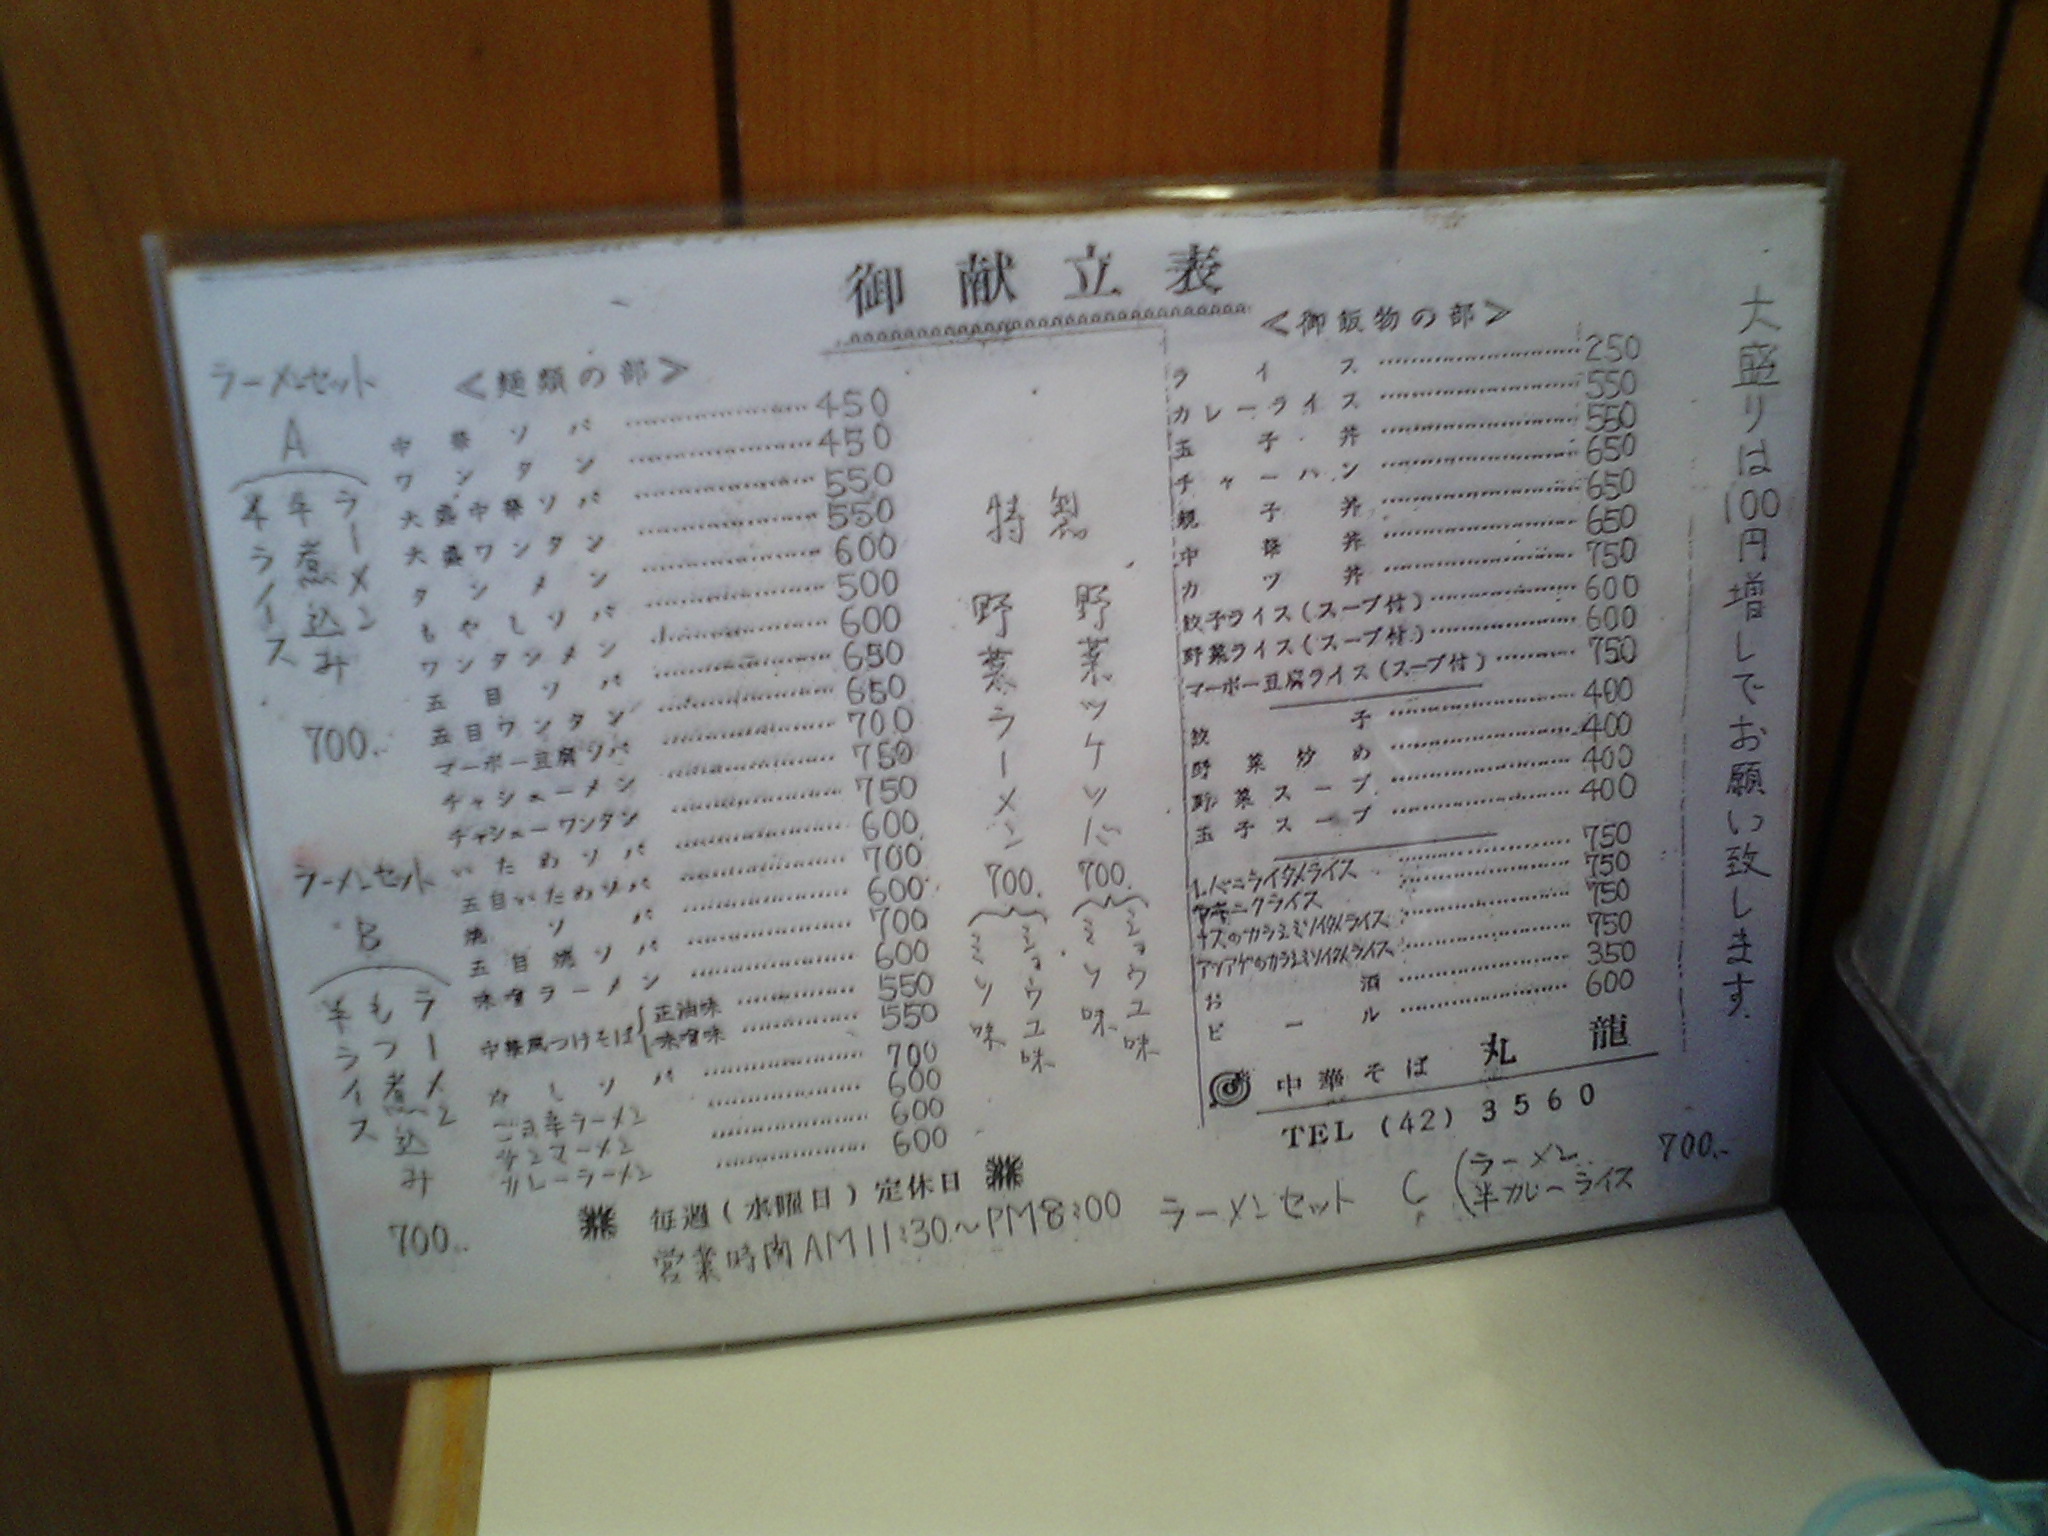 御献立表
ラーメンセット
A
ラーメン
牛煮込み
半ライス
700.
ラーメンセット
B
ラーメン
もつ煮込み
半ライス
700.
<麺類の部>
中華ソバ 450
ワンタン 450
大盛中華ソバ 550
大盛ワンタン 550
タンメン 600
もやしソバ 500
ワンタンメン 600
五目ソバ 650
五目ワンタン 650
マーボー豆腐ソバ 700
チャシューメン 750
チャシューワンタン 750
いためソバ 600
五目いためソバ 700
焼ソバ 600
五目焼ソバ 700
味噌ラーメン 600
中華風つけそば 正油味 550
味噌味 550
700
ラーメン 600
600
カレーラーメン 600
毎週(水曜日)定休日
営業時間 AM11:30~PM8:00
特製
野菜ツケソバ
700.
ショウユ味
ミソ味
野菜ラーメン
700.
ショウユ味
ミソ味
<御飯物の部>
ライス 250
カレーライス 550
玉子丼 550
チャーハン 650
親子丼 650
中華丼 650
カツ丼 750
餃子ライス(スープ付) 600
野菜ライス(スープ付) 600
マーボー豆腐ライス(スープ付) 750
餃子 400
野菜炒め 400
野菜スープ 400
玉子スープ 400
レバニライタメライス 750
ヤキニクライス 750
ナスのカラシミソイタメライス 750
アツアゲのカラシミソイタメライス 750
お酒 350
ビール 600
中華そば 丸龍
TEL (42) 3560
ラーメンセット C (ラーメン
半カレーライス
700.
大盛りは100円増しでお願い致します。